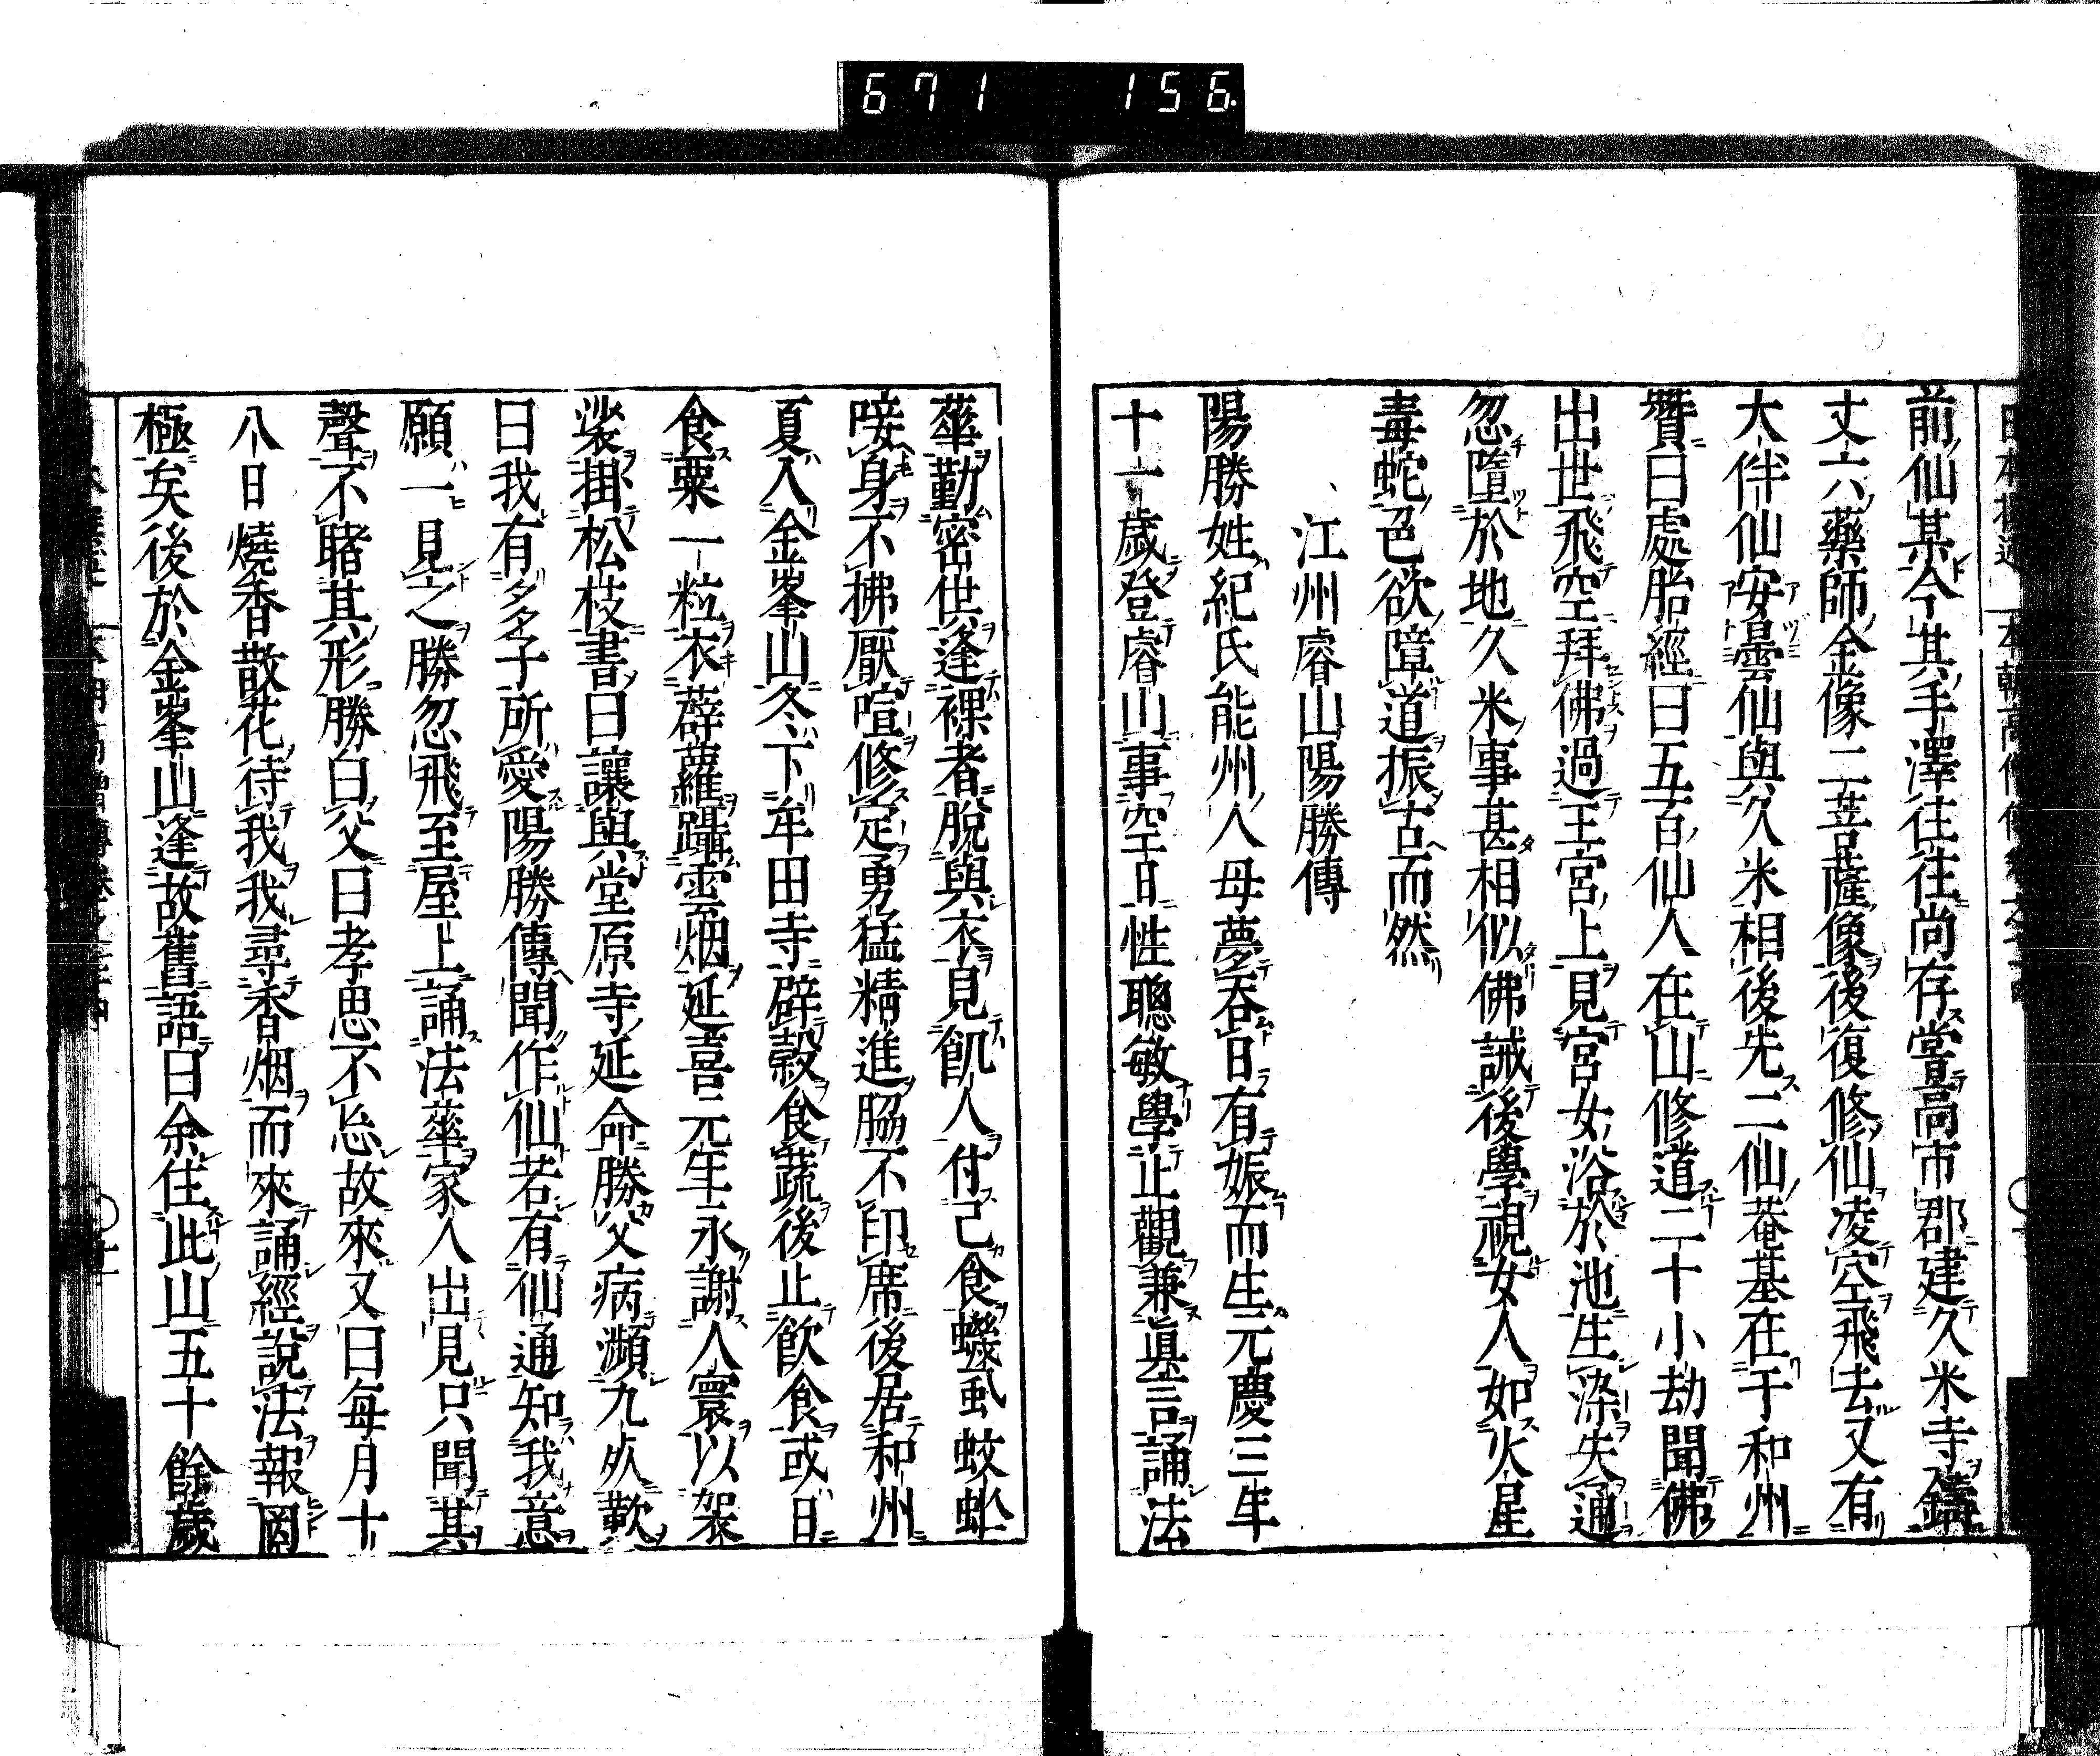 671 156.
前仙某今其手澤往往尚存嘗高市郡建久米寺鑄
丈六藥師金像二菩薩像後復修仙凌空飛去又有
大伴仙安曇仙與久米相後先二仙菴基在于和州
贊曰處胎經曰五百仙人在山修道二十小劫聞佛
出世飛空拜佛過王宮上見宮女浴於池生染失通
忽墮於地久米事甚相似佛誡後學視女人如火星
毒蛇色欲障道振古而然
江州睿山陽勝傳
陽勝姓紀氏能州人母夢吞日有娠而生元慶三年
十一歲登睿山事空日性聰敏學止觀兼眞言誦法
華勤密供逢裸者脫與衣見飢人付己食蟣虱蚊蚣
唼身不拂厭喧修定勇猛精進脇不印席後居和州
夏入金峯山冬下牟田寺辟穀食蔬後止飮食或日
食粟一粒衣薜蘿躡雲烟延喜元年永謝人寰以袈
裟掛松枝書曰讓與堂原寺延命勝父病瀕九死歎
曰我有多子所愛陽勝傳聞作仙若有仙通知我意
願一見之勝忽飛至屋上誦法華家人出見只聞其
聲不睹其形勝白父曰孝思不忘故來又曰每月十
八日燒香散花待我我尋香烟而來誦經說法報罔
極矣後於金峯山逢故舊語曰余住此山五十餘歲